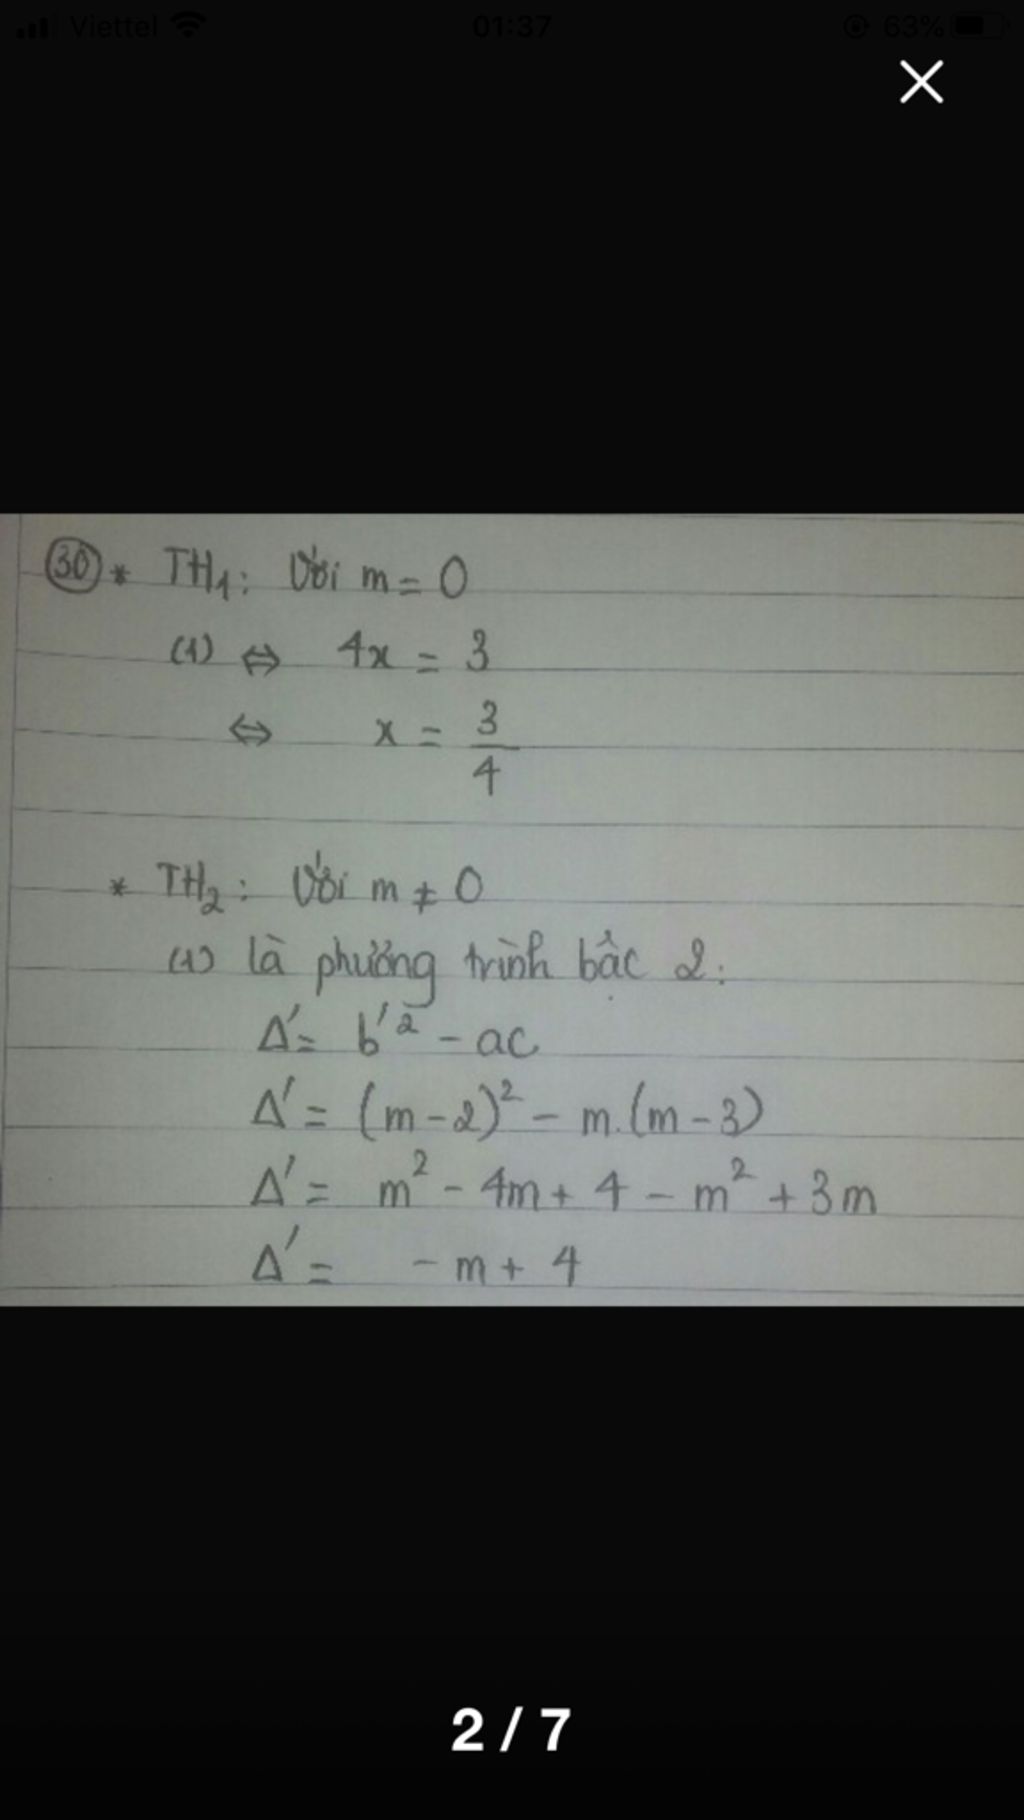 Viettel 01:37 63%
30 * TH1: Với m = 0
(1) ⇔ 4x = 3
⇔ x = 3/4
* TH2: Với m ≠ 0
(1) là phương trình bậc 2:
Δ' = b'² - ac
Δ' = (m - 2)² - m.(m - 3)
Δ' = m² - 4m + 4 - m² + 3m
Δ' = - m + 4
2 / 7